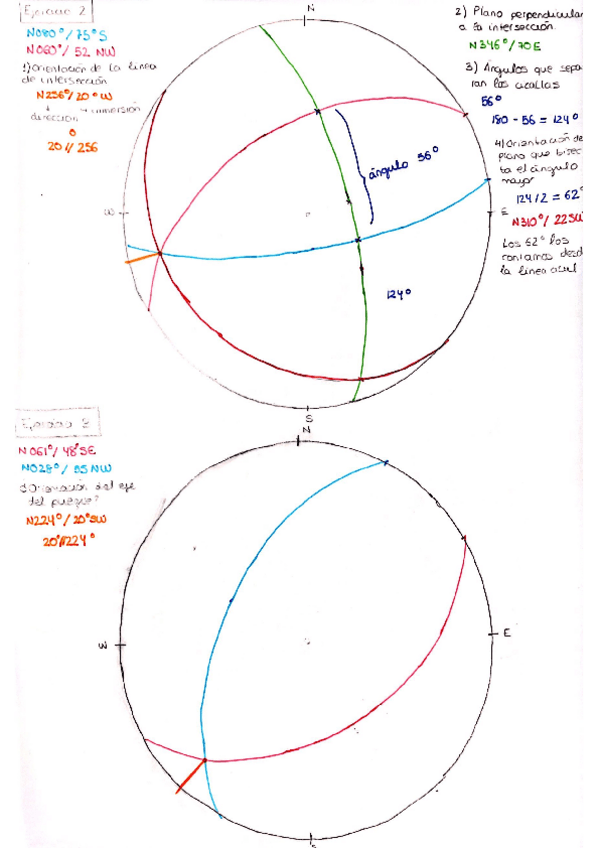 Ejercicio 2
N080°/75°S
N060°/52 NW
1) Orientación de la línea
de intersección
N256°/20°W
dirección
inmersión
o
20//256
N
W
E
S
ángulo 56°
124°
2) Plano perpendicular
a la intersección.
N346°/70E
3) Ángulos que sepa
ran las
56°
180 - 56 = 124°
4) Orientación de
plano que bisec
ta el ángulo
mayor
124/2 = 62°
N310°/22SW
Los 62° los
contamos desd
la línea azul
Ejercicio 3
N061°/48°SE
N028°/55NW
Orientación del eje
del pliegue?
N224°/20°SW
20°//224°
N
W
E
S